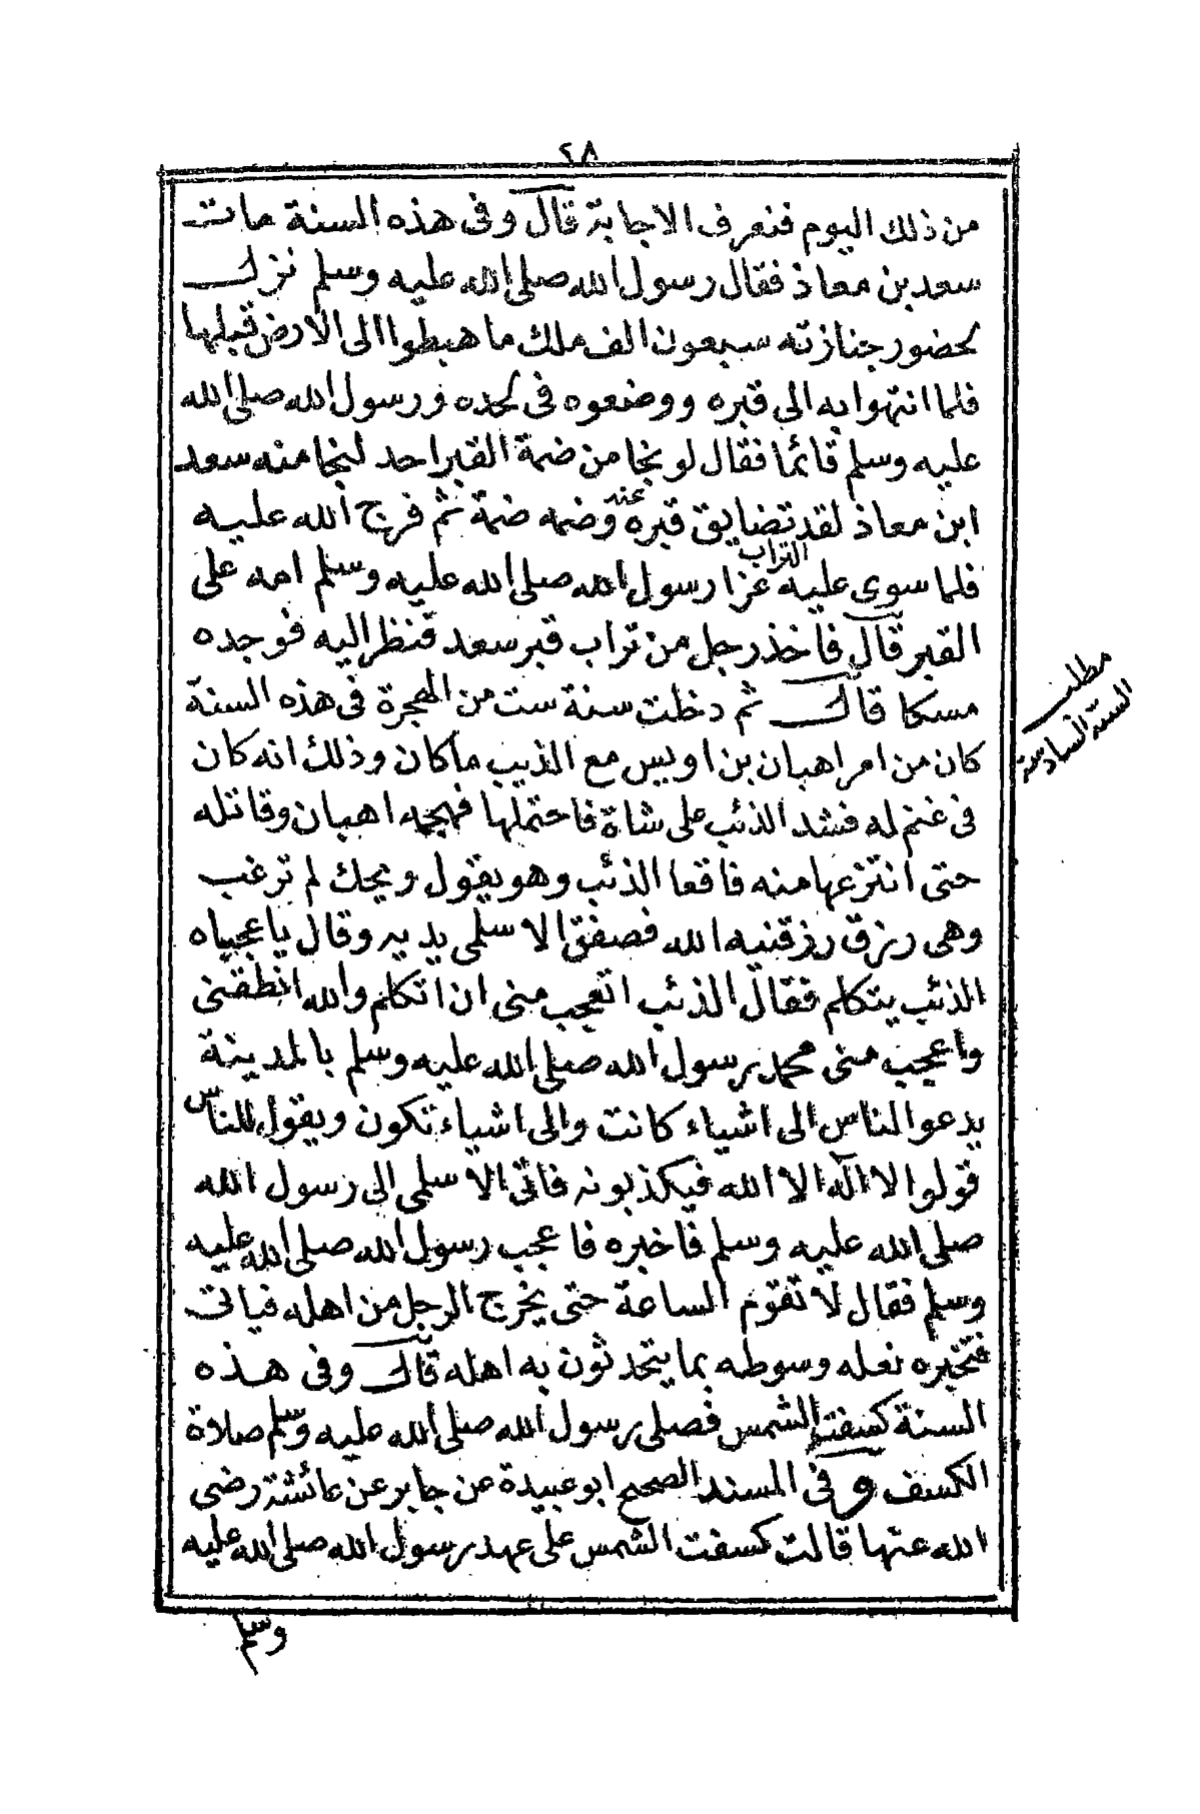 ٢٨
من ذلك اليوم فنعرف الاجابة قال وفى هذه السنة مات
سعد بن معاذ فقال رسول الله صلى الله عليه وسلم نزل
لحضور جنازته سبعون الف ملك ما هبطوا الى الارض قبلها
فلما انتهوا به الى قبره ووضعوه فى لحده ورسول الله صلى الله
عليه وسلم قائما فقال لو نجا من ضمة القبر احد لنجا منه سعد
ابن معاذ لقد تضايق قبره وضمه ضمة ثم فرج الله عليه
عنه
التراب
فلما سوى عليه عزا رسول الله صلى الله عليه وسلم امه على
القبر قال فأخذ رجل من تراب قبر سعد فنظر اليه فوجده
مسكا قال ثم دخلت سنة ست من الهجرة فى هذه السنة
مطلب
السنة السادسة
كان من امر اهبان بن اويس مع الذيب ما كان وذلك انه كان
فى غنم له فشد الذئب على شاة فاحتملها فهجمه اهبان وقاتله
حتى انتزعها منه فاقعا الذئب وهو يقول ويحك لم ترغب
وهى رزق رزقنيه الله فصفق الاسلمى يديه وقال يا عجباه
الذئب يتكلم فقال الذئب اتعجب منى ان اتكلم والله انطقنى
واعجب منى محمد رسول الله صلى الله عليه وسلم بالمدينة
يدعوا لناس الى اشياء كانت والى اشياء تكون ويقول للناس
قولوا لا اله الا الله فيكذبونه فاتى الاسلمى الى رسول الله
صلى الله عليه وسلم فأخبره فاعجب رسول الله صلى الله عليه
وسلم فقال لا تقوم الساعة حتى يخرج الرجل من اهله فياتى
فتخبره نعله وسوطه بما يتحدثون به اهله قال وفى هذه
السنة كسفت الشمس فصلى رسول الله صلى الله عليه وسلم صلاة
الكسف وفى المسند الصحيح ابو عبيدة عن جابر عن عائشة رضى
الله عنها قالت كسفت الشمس على عهد رسول الله صلى الله عليه
وسلم